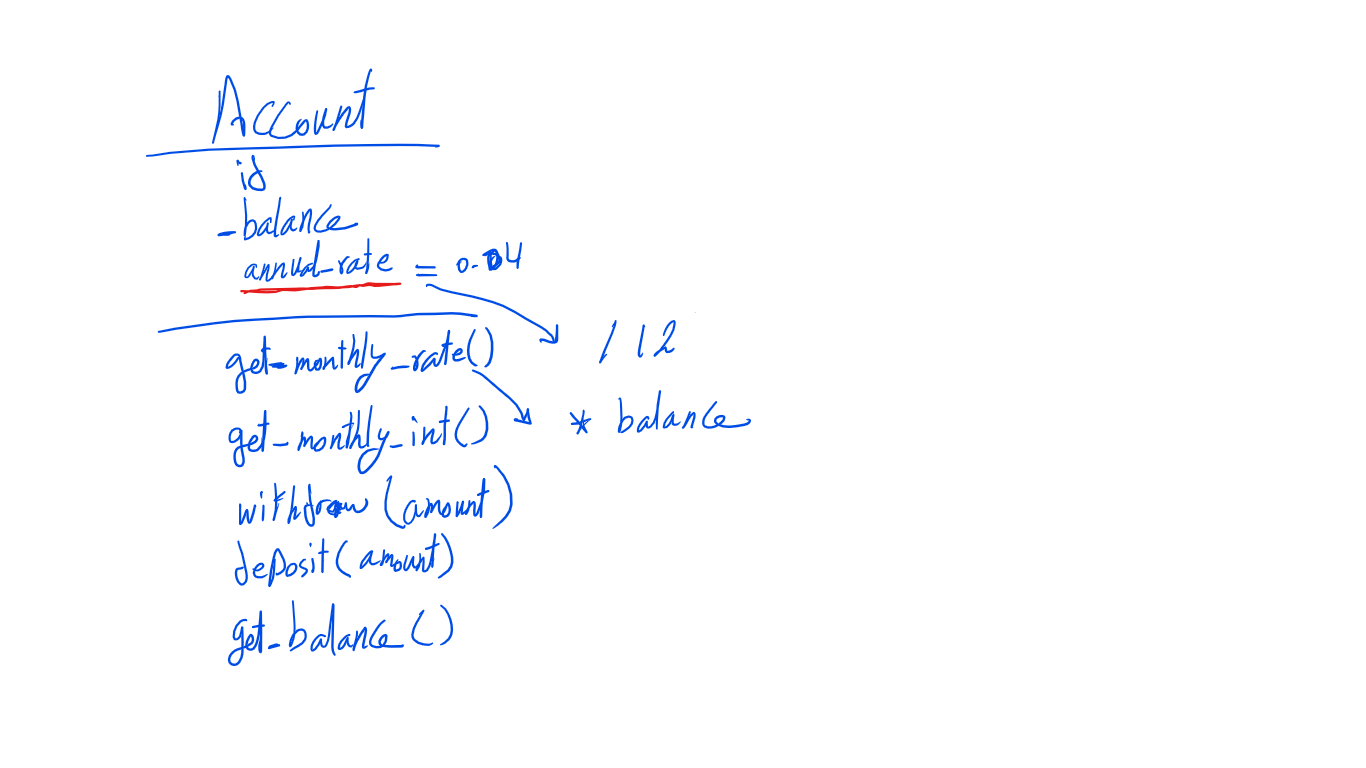 Account
id
_balance
annual_rate = 0.04
get_monthly_rate() / 12
get_monthly_int() * balance
withdraw (amount)
deposit (amount)
get_balance ()